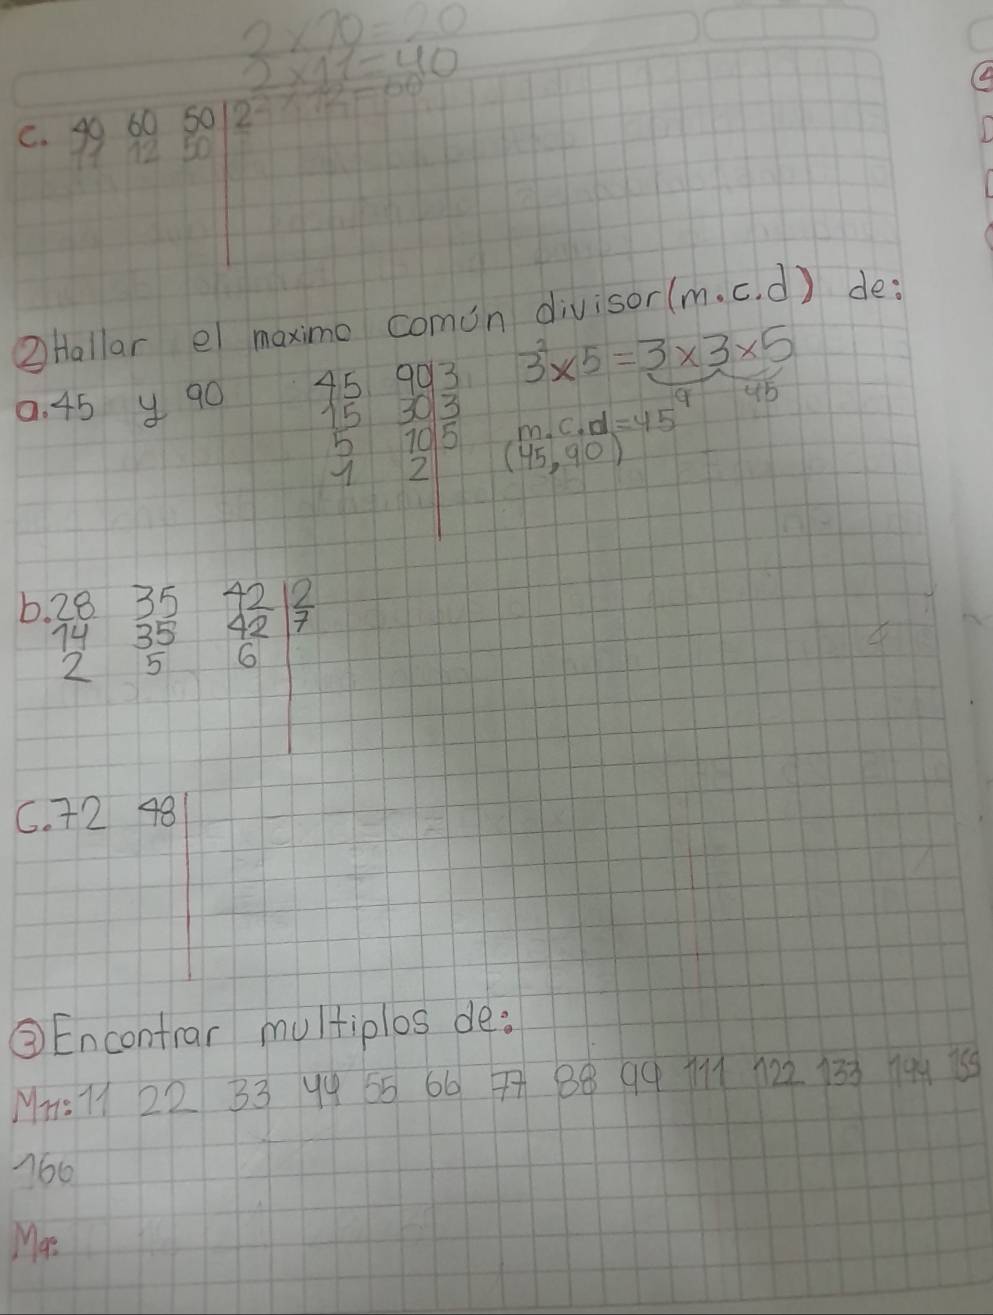 2 x 10 = 20
2 x 11 = 40
c. 49 60 50 | 2
11 12 50
② Hallar el maximo común divisor (m.c.d) de:
a. 45 y 90 45 90 3 3² x 5 = 3 x 3 x 5
15 30 3 9 45
5 10 5 m.c.d = 45
1 2 (45, 90)
b. 28 35 42 2
14 35 42 7
2 5 6
C. 72 48
③ Encontrar multiplos de:
M11: 11 22 33 44 55 66 77 88 99 111 122 133 144 155
166
M9: